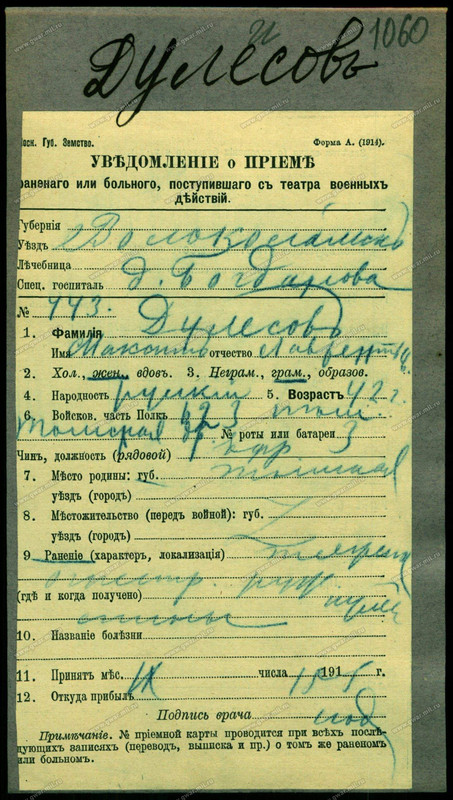 1060
Дулесовъ
Моск. Губ. Земство.
Форма А. (1914).
УВѢДОМЛЕНІЕ о ПРІЕМѢ
раненаго или больного, поступившаго съ театра военныхъ
дѣйствій.
Губернія
Уѣздъ Волоколамскъ
Лѣчебница
Спец. госпиталь д. Богданова
№ 443.
1. Фамилія Дулесовъ
Имя Максимъ отчество
2. Хол., жен., вдовъ. 3. Неграм., грам., образов.
4. Народность русскій 5. Возрастъ 42 г.
6. Войсков. часть Полкъ 623
Томская др № роты или батареи 3
Чинъ, должность (рядовой)
7. Мѣсто родины: губ. Томская
уѣздъ (городъ)
8. Мѣстожительство (передъ войной): губ.
уѣздъ (городъ)
9 Раненіе (характеръ, локализація)
(гдѣ и когда получено)
10. Названіе болѣзни
11. Принятъ мѣс. IX числа 191 г.
12. Откуда прибылъ
Подпись врача
Примѣчаніе. № пріемной карты проводится при всѣхъ послѣ-
дующихъ записяхъ (переводъ, выписка и пр.) о томъ же раненомъ
или больномъ.